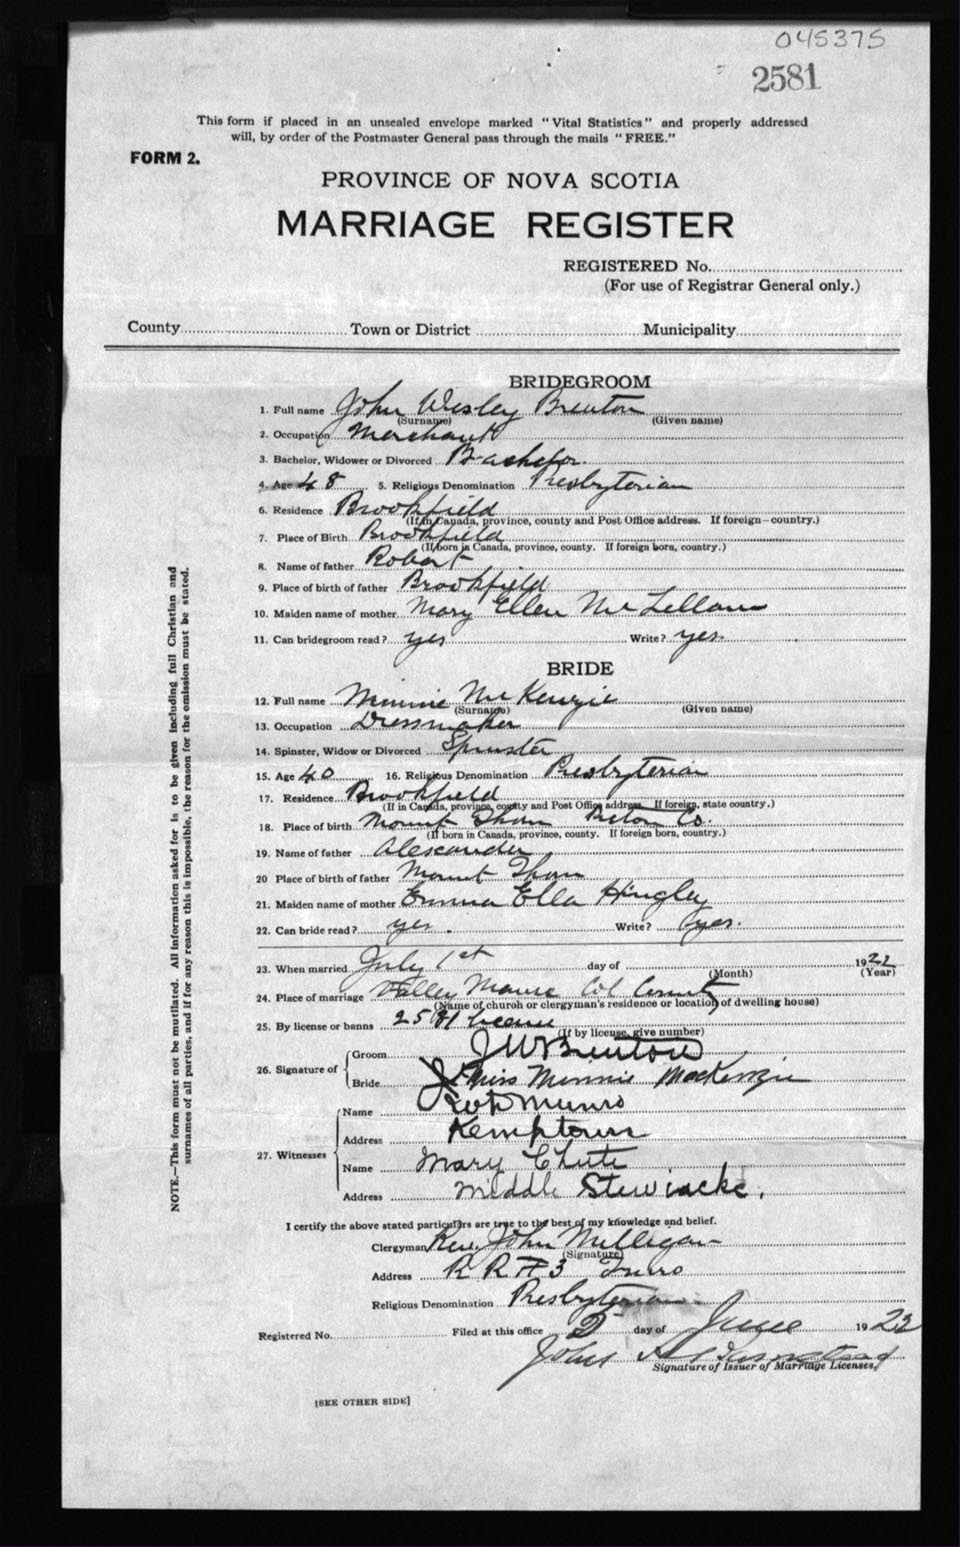 045375
2581
This form if placed in an unsealed envelope marked "Vital Statistics" and properly addressed
will, by order of the Postmaster General pass through the mails "FREE."
FORM 2.
PROVINCE OF NOVA SCOTIA
MARRIAGE REGISTER
REGISTERED No.
(For use of Registrar General only.)
County Town or District Municipality
BRIDEGROOM
1. Full name John Wesley Brenton
(Surname) (Given name)
2. Occupation Merchant
3. Bachelor, Widower or Divorced Bachelor
4. Age 48 5. Religious Denomination Presbyterian
6. Residence Brookfield
(If in Canada, province, county and Post Office address. If foreign—country.)
7. Place of Birth Brookfield
(If born in Canada, province, county. If foreign born, country.)
8. Name of father Robert
9. Place of birth of father Brookfield
10. Maiden name of mother Mary Ellen McLellan
11. Can bridegroom read? yes Write? yes.
BRIDE
12. Full name Minnie McKenzie
(Surname) (Given name)
13. Occupation Dressmaker
14. Spinster, Widow or Divorced Spinster
15. Age 40 16. Religious Denomination Presbyterian
17. Residence Brookfield
(If in Canada, province, county and Post Office address. If foreign, state country.)
18. Place of birth Mount Thom Picton Co.
(If born in Canada, province, county. If foreign born, country.)
19. Name of father Alexander
20 Place of birth of father Mount Thom
21. Maiden name of mother Emma Ella Hingley
22. Can bride read? yes. Write? yes.
23. When married July 1st day of 1922
(Month) (Year)
24. Place of marriage Valley Manse Col County
(Name of church or clergyman's residence or location of dwelling house)
25. By license or banns 2581 license
(If by license, give number)
26. Signature of
Groom J W Brenton
Bride Miss Minnie MacKenzie
27. Witnesses
Name Munro
Address Kemptown
Name Mary Chute
Address Middle Stewiacke.
I certify the above stated particulars are true to the best of my knowledge and belief.
Clergyman Rev. John Milligan
(Signature)
Address R R # 3 Truro
Religious Denomination Presbyterian
Registered No. Filed at this office 2 day of June 1922
John
Signature of Issuer of Marriage Licenses,
[SEE OTHER SIDE]
NOTE.—This form must not be mutilated. All information asked for is to be given including full Christian and
surnames of all parties, and if for any reason this is impossible, the reason for the omission must be stated.